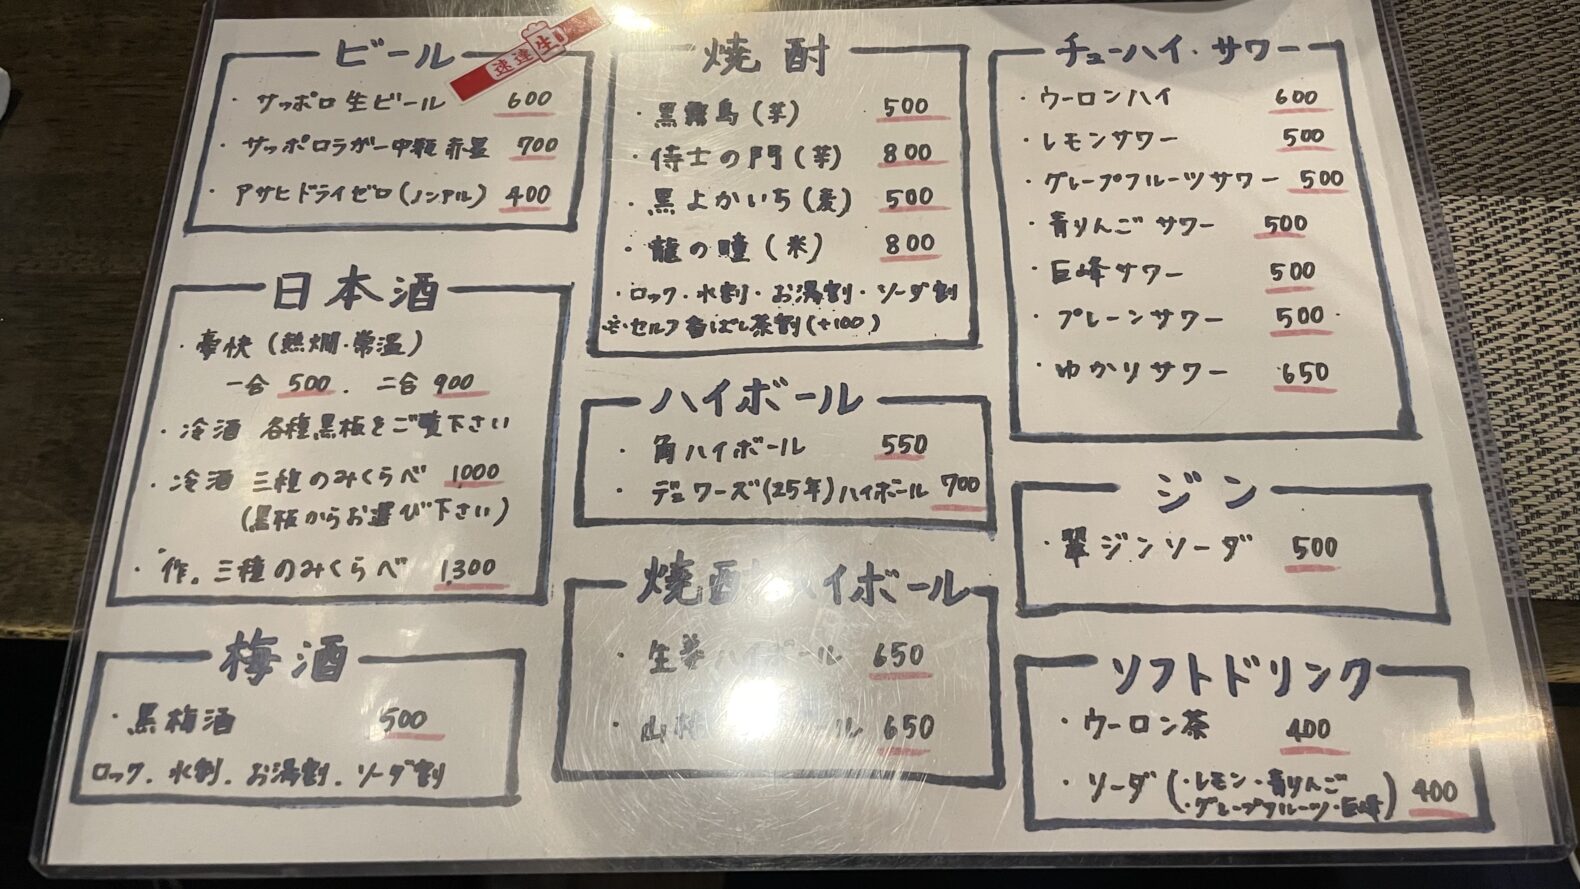 ビール
速達生
・サッポロ生ビール 600
・サッポロラガー中瓶 赤星 700
・アサヒドライゼロ(ノンアル) 400
日本酒
・豪快(熱燗・常温)
一合 500. 二合 900
・冷酒 各種黒板をご覧下さい
・冷酒 三種のみくらべ 1000
(黒板からお選び下さい)
・作。三種のみくらべ 1,300
梅酒
・黒梅酒 500
ロック.水割.お湯割.ソーダ割
焼酎
・黒霧島(芋) 500
・侍士の門(芋) 800
・黒よかいち(麦) 500
・龍の瞳(米) 800
・ロック・水割・お湯割・ソーダ割
・セルフ香ばし茶割(+100)
ハイボール
・角ハイボール 550
・デュワーズ(25年)ハイボール 700
焼酎ハイボール
・生姜ハイボール 650
ール 650
チューハイ・サワー
・ウーロンハイ 600
・レモンサワー 500
・グレープフルーツサワー 500
・青りんごサワー 500
・巨峰サワー 500
・プレーンサワー 500
・ゆかりサワー 650
ジン
・翠ジンソーダ 500
ソフトドリンク
・ウーロン茶 400
・ソーダ(・レモン・青りんご
・グレープフルーツ・巨峰) 400